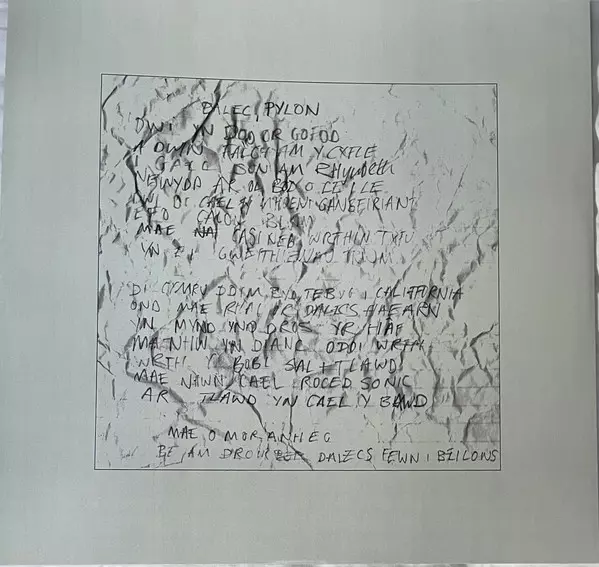 DALEC, PYLON
DWI YN DOD OR GOFOD
A DWIN TALGU AM Y CYFLE
I GAEL SON AM RHYWBETH
NEWYDD AR OL BOD O LE I LE
DWI DI CAEL GANEFIRIANT
CALON
MAE NA CASINEB WRTHIN TYFU
YN EI GWEITHIENAU TRWM
DI CYMRU DDIM BYD TEBYG I CALIFORNIA
OND MAE RHAI OR DALECS HAEARN
YN MYND YNO DROS YR HAF
MA NHW YN DIANC ODDI WRTH
WRTH Y BOBL SAL + TLAWD
MAE NHW'N CAEL ROCED SONIC
AR TLAWD YN CAEL Y BAWD
MAE O MOR ANHEG
BE AM DROI'R DALECS FEWN I BEILONS